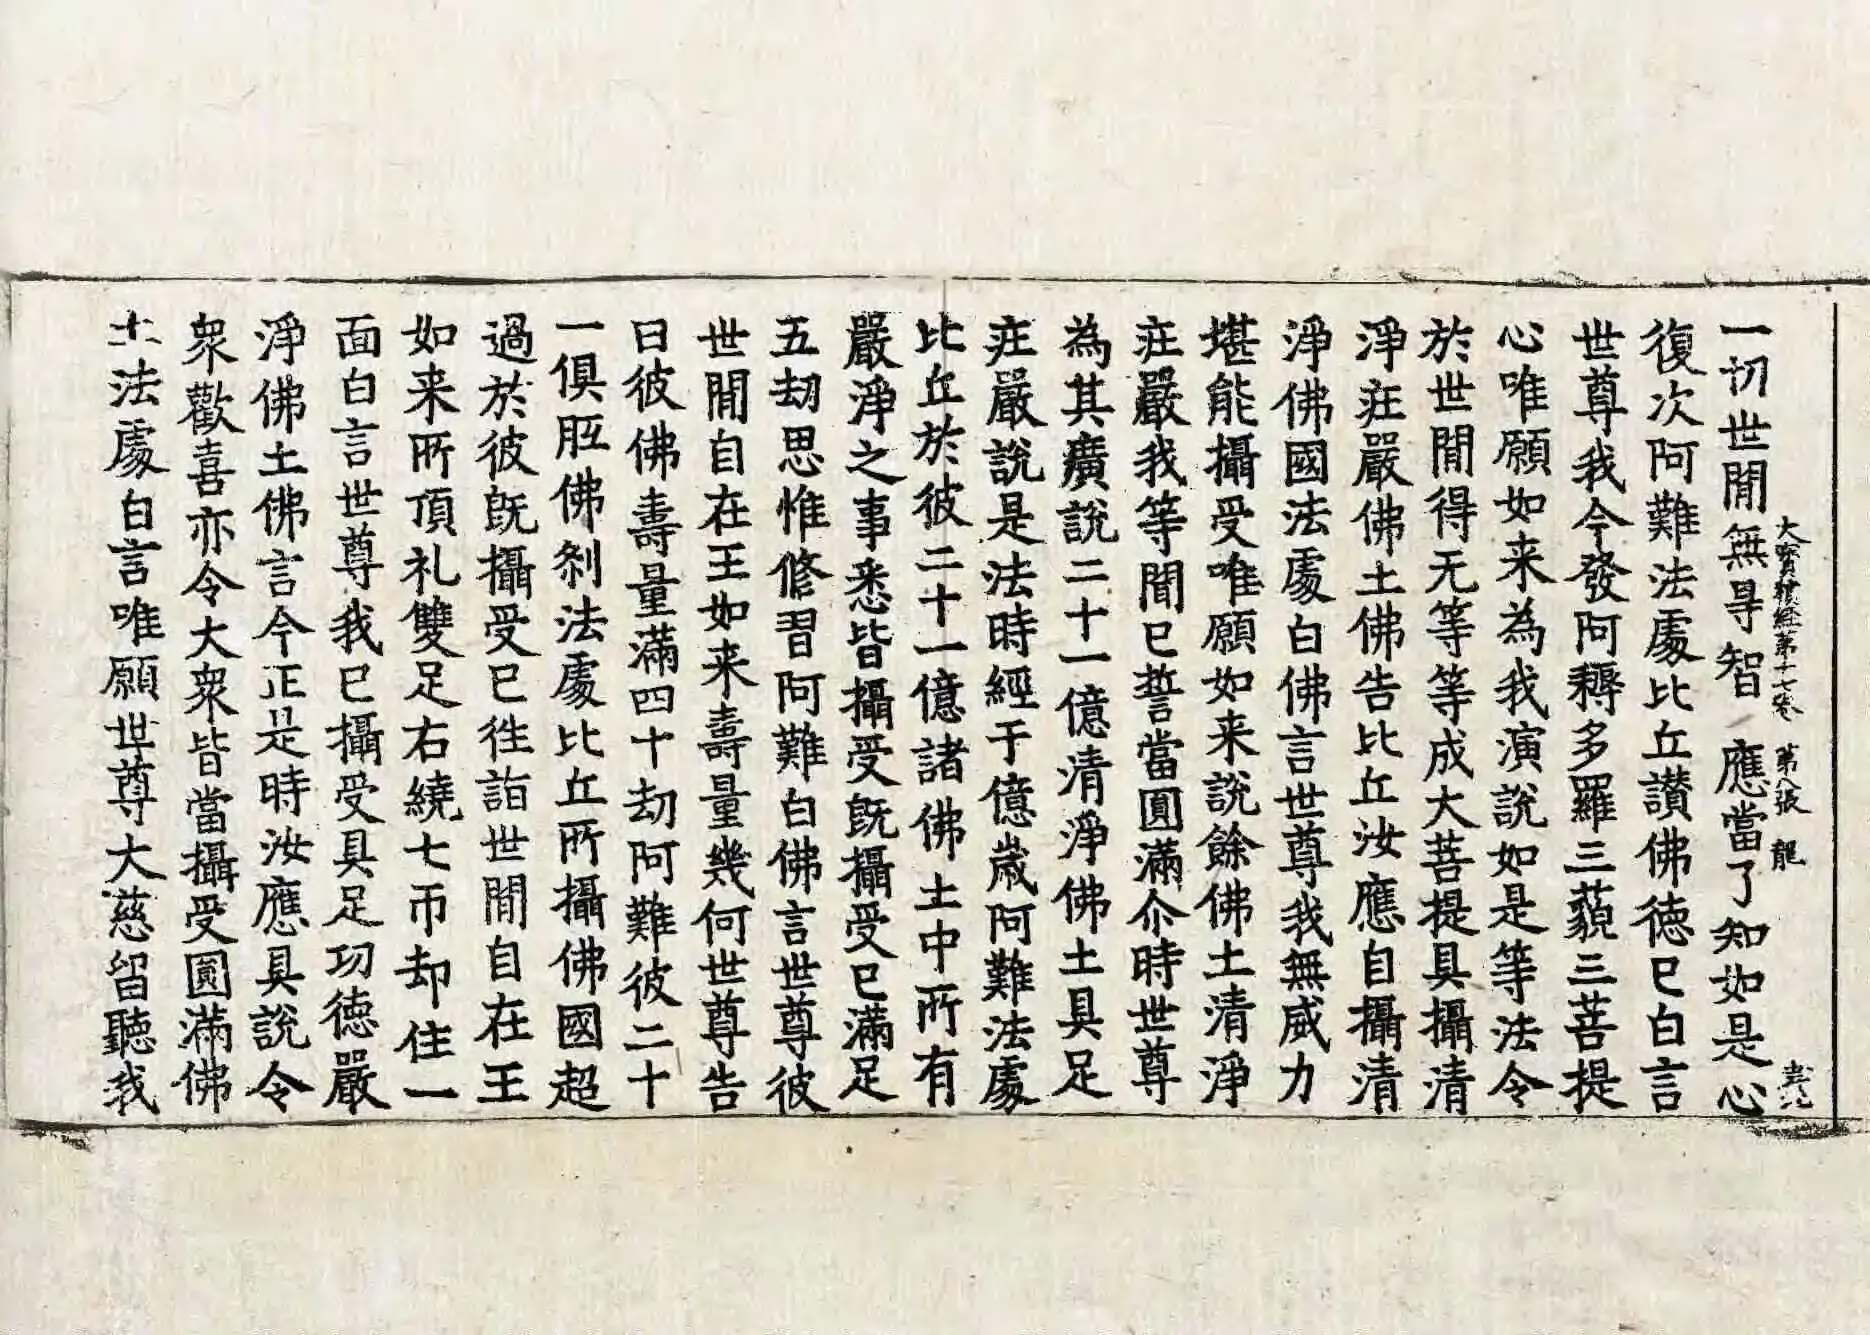 大寶積經第十七卷 第八張 龍
一切世間無㝵智 應當了知如是心
復次阿難法處比丘讃佛德已白言
世尊我今發阿耨多羅三藐三菩提
心唯願如来為我演說如是等法令
於世間得无等等成大菩提具攝清
淨莊嚴佛土佛告比丘汝應自攝清
淨佛國法處白佛言世尊我無威力
堪能攝受唯願如来說餘佛土清淨
莊嚴我等聞已誓當圓滿尒時世尊
為其廣說二十一億清淨佛土具足
莊嚴說是法時經于億歲阿難法處
比丘於彼二十一億諸佛土中所有
嚴淨之事悉皆攝受既攝受已滿足
五劫思惟修習阿難白佛言世尊彼
世間自在王如来壽量幾何世尊告
曰彼佛壽量滿四十劫阿難彼二十
一俱胝佛剎法處比丘所攝佛國超
過於彼既攝受已徃詣世間自在王
如来所頂礼雙足右繞七帀却住一
面白言世尊我已攝受具足功德嚴
淨佛土佛言今正是時汝應具說令
衆歡喜亦令大衆皆當攝受圓滿佛
土法處白言唯願世尊大慈留聽我